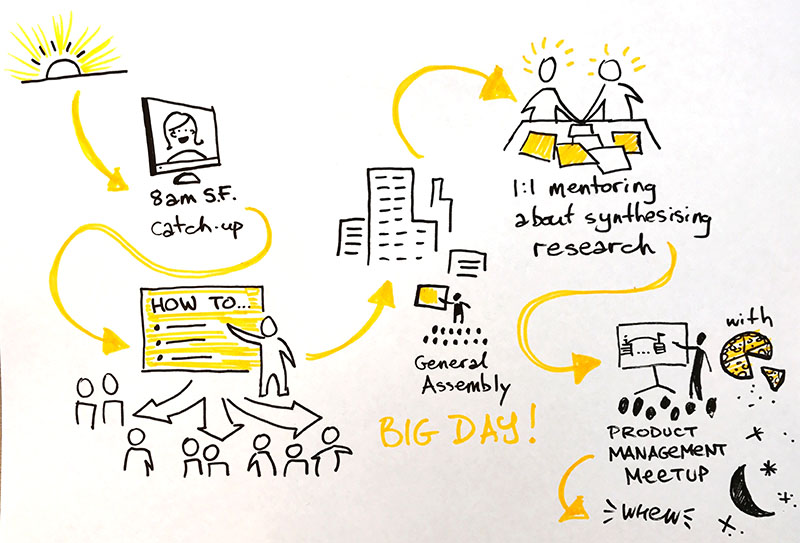 8am S.F.
catch-up
HOW TO...
General
Assembly
BIG DAY!
1:1 mentoring
about synthesising
research
with
PRODUCT
MANAGEMENT
MEETUP
WHEW